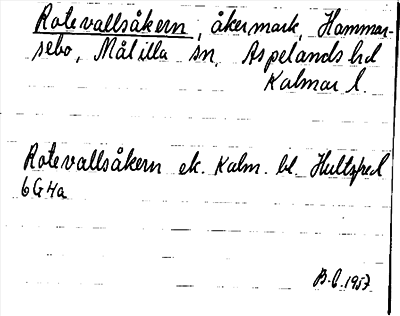 Rotevallsåkern, åkermark, Hammar-
sebo, Målilla sn, Aspelands hd
Kalmar l.
Rotevallsåkern ek. Kalm. bl. Hultsfred
6G4a
B-b. 1957